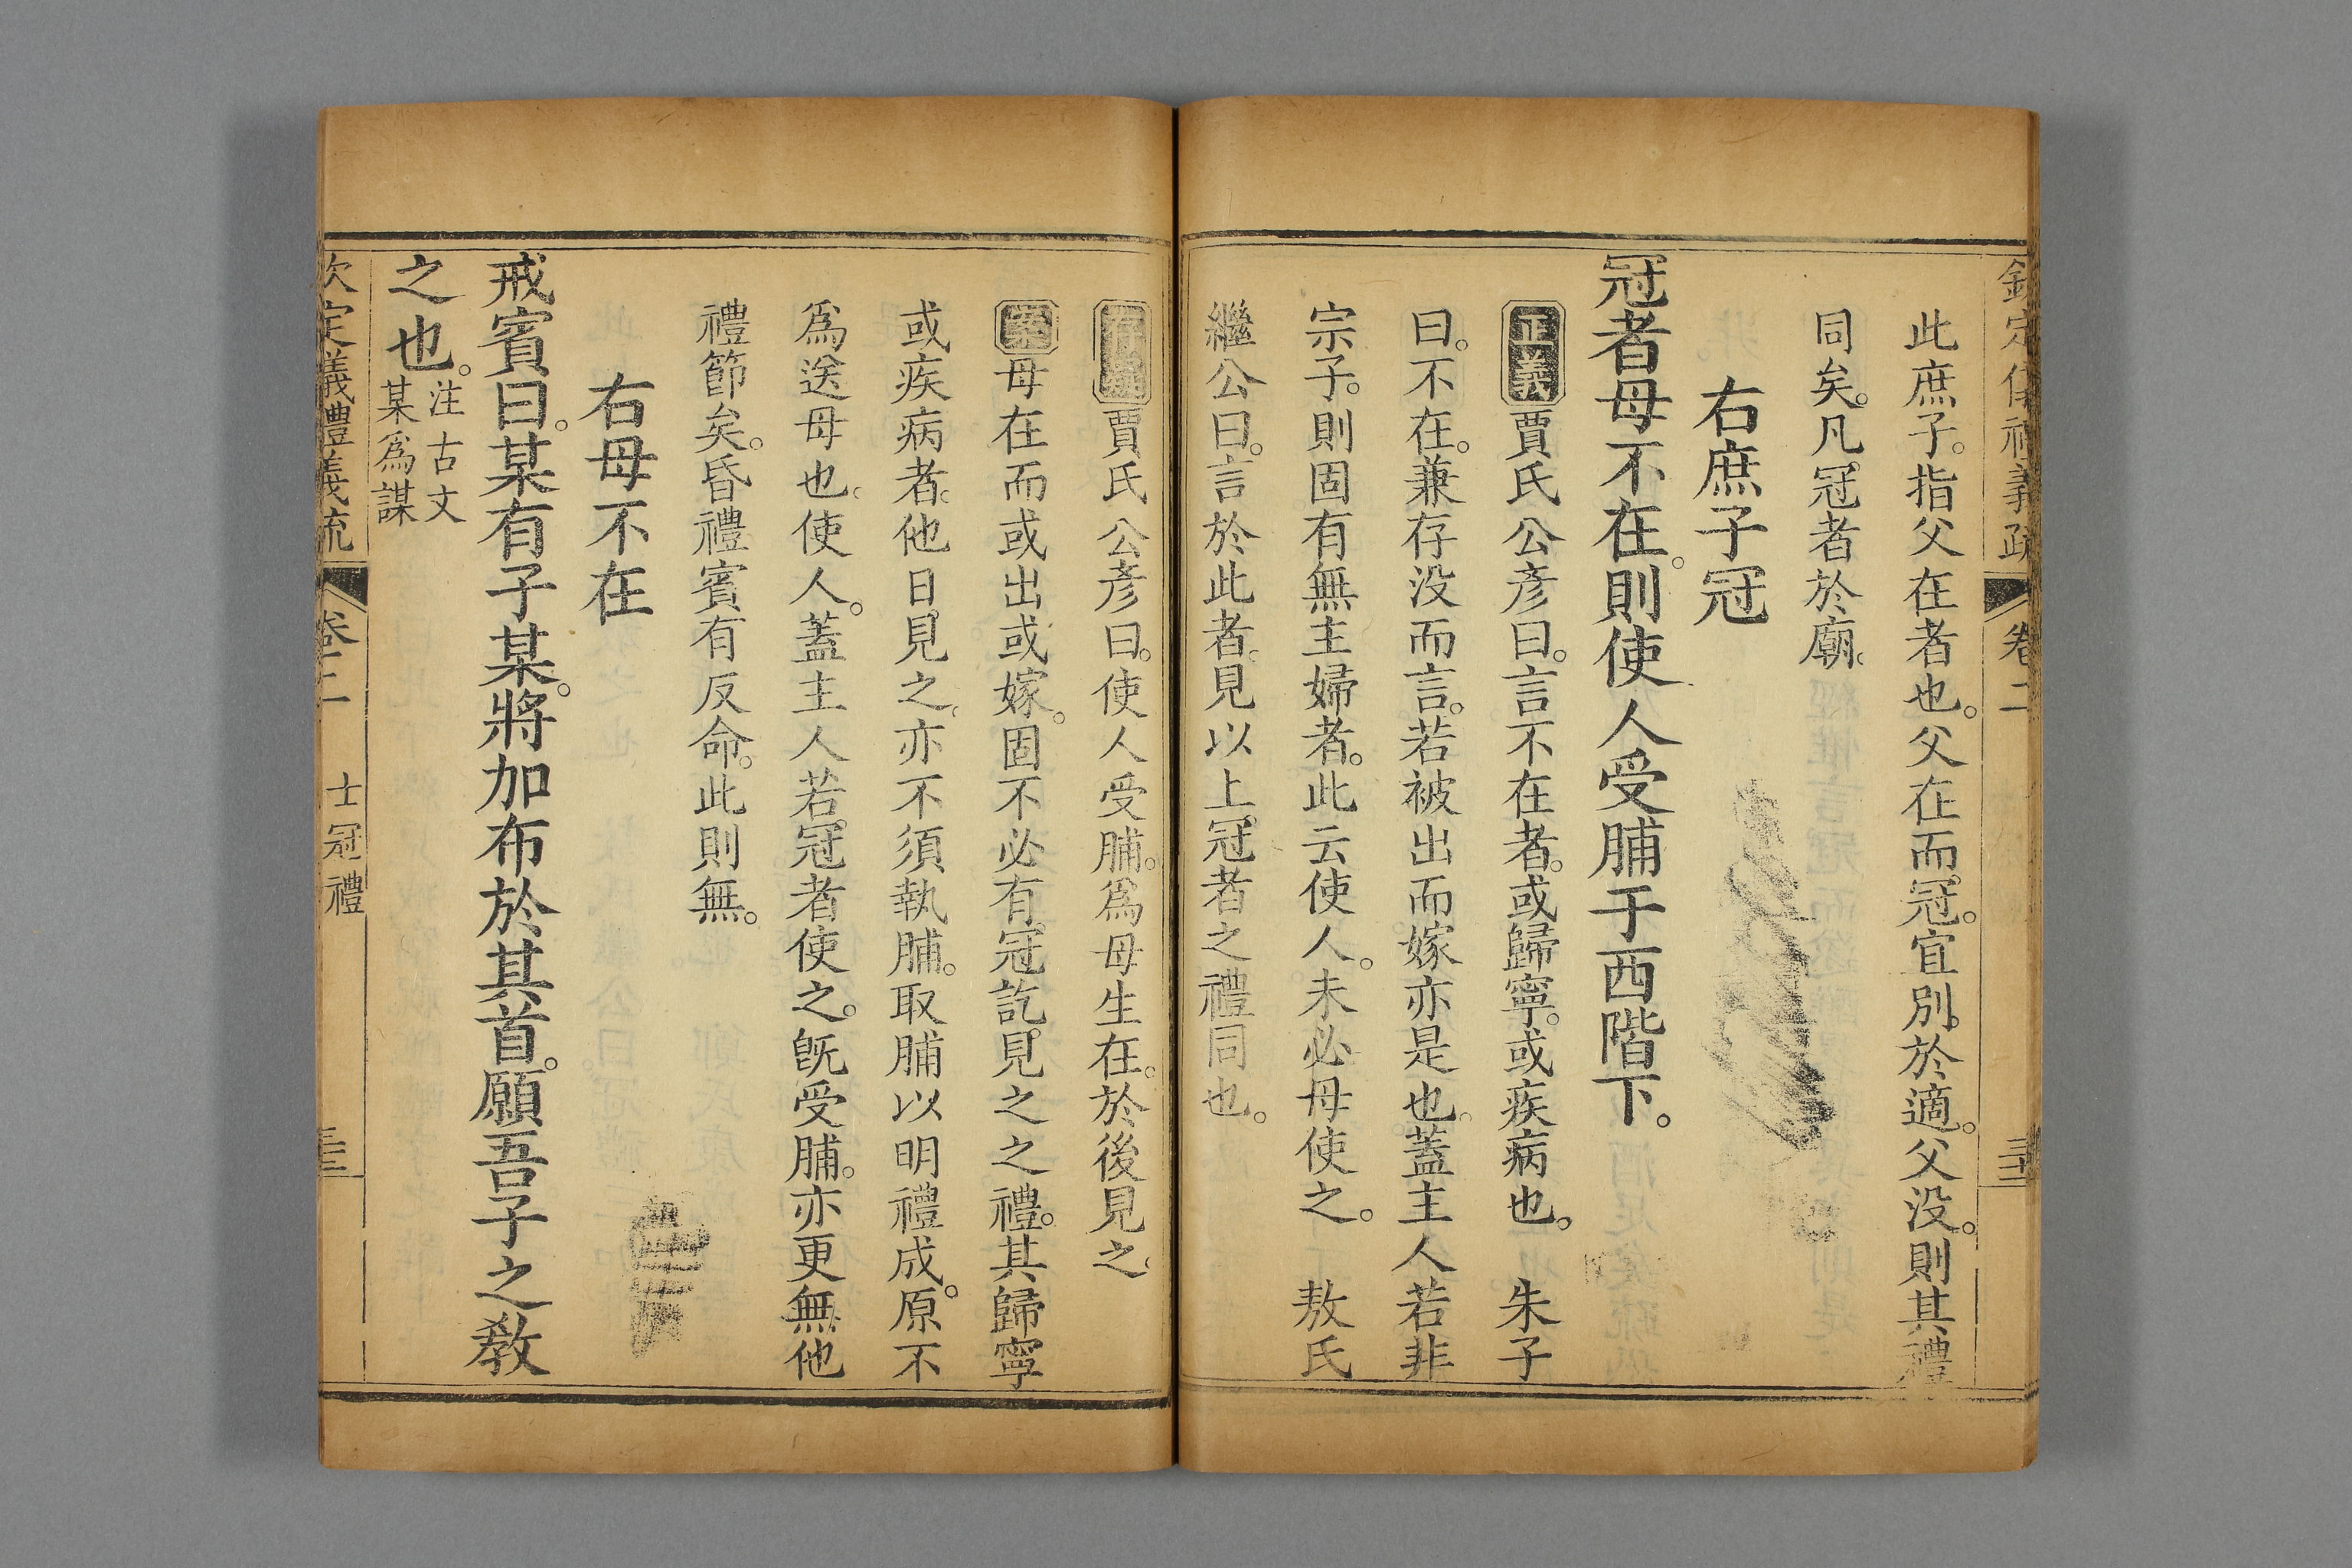 欽定儀禮義疏 卷二
此庶子。指父在者也。父在而冠。宜別於適。父没。則其禮
同矣。凡冠者於廟。
右庶子冠
冠者母不在。則使人受脯于西階下。
正義 賈氏公彦曰。言不在者。或歸寧。或疾病也。 朱子
曰。不在。兼存没而言。若被出而嫁亦是也。蓋主人若非
宗子。則固有無主婦者。此云使人。未必母使之。 敖氏
繼公曰。言於此者。見以上冠者之禮同也。
存疑 賈氏公彦曰。使人受脯。爲母生在。於後見之。
案 母在而或出或嫁。固不必有冠訖見之之禮。其歸寧
或疾病者。他日見之。亦不須執脯。取脯以明禮成。原不
爲送母也。使人。蓋主人若冠者使之。旣受脯。亦更無他
禮節矣。昏禮賓有反命。此則無。
右母不在
戒賓曰。某有子某。將加布於其首。願吾子之教
之也。注古文
某爲謀
欽定儀禮義疏 卷二 士冠禮